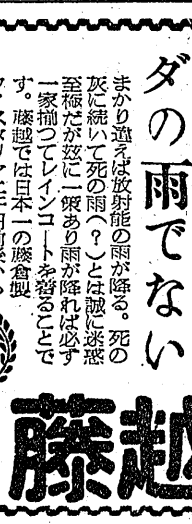 ダの雨でない
まかり違えば放射能の雨が降る。死の
灰に続いて死の雨(?)とは誠に迷惑
至極だが茲に一策あり雨が降れば必ず
一家揃つてレインコートを着ることで
す。藤越では日本一の藤倉製
藤越